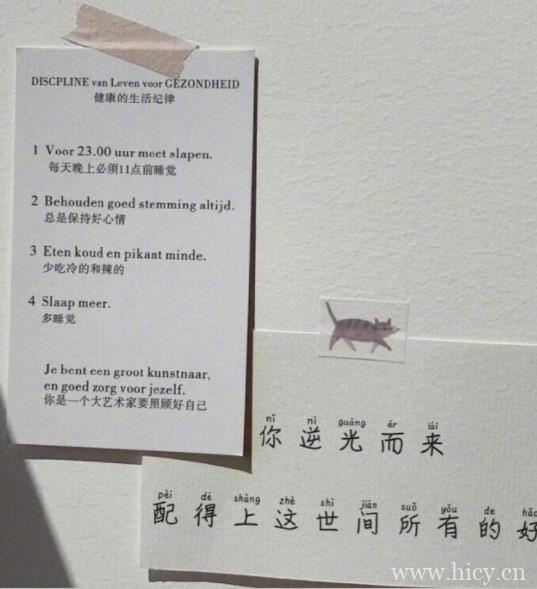 DISCPLINE van Leven voor GEZONDHEID
健康的生活纪律
1 Voor 23.00 uur moet slapen.
每天晚上必须11点前睡觉
2 Behouden goed stemming altijd.
总是保持好心情
3 Eten koud en pikant minde.
少吃冷的和辣的
4 Slaap meer.
多睡觉
Je bent een groot kunstnaar,
en goed zorg voor jezelf.
你是一个大艺术家要照顾好自己
nǐ nì guāng ér lái
你逆光而来
pèi dé shàng zhè shì jiān suǒ yǒu de hǎo
配得上这世间所有的好
www.hicy.cn